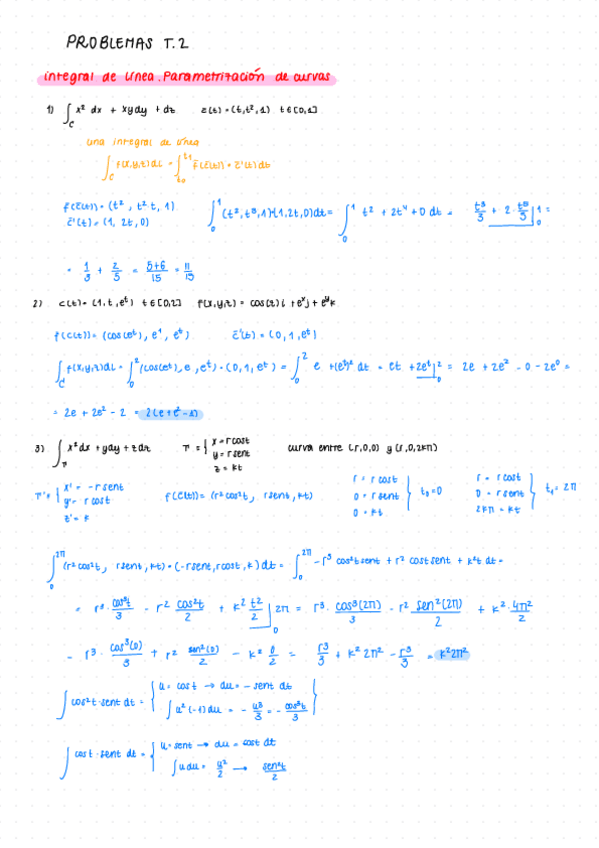 PROBLEMAS T.2
integral de línea. Parametrización de curvas
1) ∫_C x² dx + xy dy + dz   c(t) = (t, t², 1)   t ∈ [0,1]
una integral de línea
∫_C f(x,y,z) dl = ∫_{t₀}^{t₁} f(c̄(t)) · c̄'(t) dt
f(c̄(t)) = (t², t² t, 1)   ∫_0^1 (t², t³, 1)·(1, 2t, 0) dt = ∫_0^1 t² + 2t⁴ + 0 dt = t³/3 + 2 · t⁵/5 ]_0^1 =
c̄'(t) = (1, 2t, 0)
= 1/3 + 2/5 = 5+6/15 = 11/15
2) c(t) = (1, t, eᵗ)   t ∈ [0,2]   f(x,y,z) = cos(z) i + eˣ j + eʸ k
f(c(t)) = (cos(eᵗ), e¹, eᵗ)   c̄'(t) = (0, 1, eᵗ)
∫_C f(x,y,z) dl = ∫_0^2 (cos(eᵗ), e, eᵗ) · (0, 1, eᵗ) = ∫_0^2 e + (eᵗ)² dt = et + 2eᵗ ]_0^2 = 2e + 2e² - 0 - 2e⁰ =
= 2e + 2e² - 2 = 2(e + e² - 1)
3) ∫ x² dx + y dy + z dz   { x = r cost
y = r sent   curva entre (r,0,0) y (r,0,2kπ)
z = kt
{ x' = - r sent   f(c̄(t)) = (r² cos²t, r sent, kt)   r = r cost   r = r cost
y' = r cost   0 = r sent } t₀ = 0   0 = r sent } t₁ = 2π
z' = k   0 = kt   2kπ = kt
∫_0^{2π} (r² cos²t, r sent, kt) · (- r sent, r cost, k) dt = ∫_0^{2π} - r³ cos²t sent + r² cost sent + k² t dt =
= r³ · cos³t/3 - r² cos²t/2 + k² t²/2 ]_0^{2π} = r³ · cos³(2π)/3 - r² sen²(2π)/2 + k² · 4π²/2
- r³ · cos³(0)/3 + r² sen²(0)/2 - k² · 0/2 = r³/3 + k² 2π² - r³/3 = k² 2π²
∫ cos²t · sent dt = { u = cos t → du = - sent dt
∫ u² (-1) du = - u³/3 = - cos³t/3 }
∫ cost · sent dt = { u = sent → du = cost dt
∫ u du = u²/2 → sen²t/2